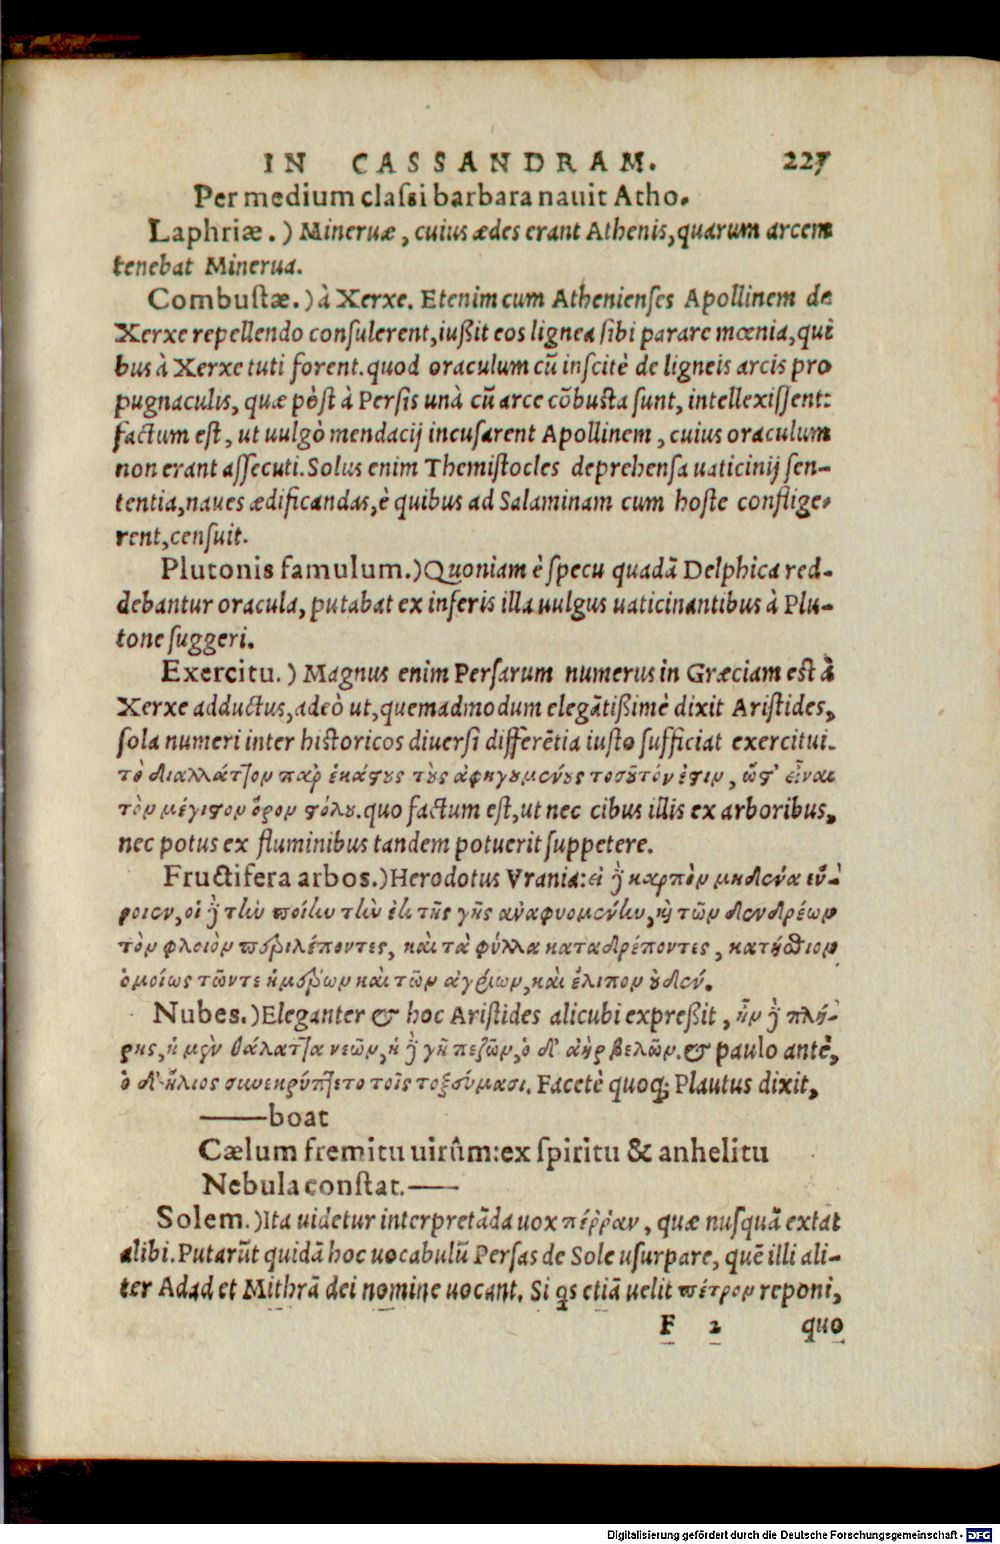 IN CASSANDRAM. 227
Per medium claſsi barbara nauit Atho.
Laphriæ.) Mineruæ, cuius ædes erant Athenis, quarum arcem
tenebat Minerua.
Combuſtæ.) à Xerxe. Etenim cum Athenienſes Apollinem de
Xerxe repellendo conſulerent, iußit eos lignea ſibi parare mœnia, qui
bus à Xerxe tuti forent. quod oraculum cũ inſcitè de ligneis arcis pro
pugnaculis, quæ pòſt à Perſis unà cũ arce cõbuſta ſunt, intellexiſſent:
factum eſt, ut uulgò mendacij incuſarent Apollinem, cuius oraculum
non erant aſſecuti. Solus enim Themiſtocles deprehenſa uaticinij ſen-
tentia, naues ædificandas, è quibus ad Salaminam cum hoſte conflige-
rent, cenſuit.
Plutonis famulum.) Quoniam è ſpecu quadã Delphica red-
debantur oracula, putabat ex inferis illa uulgus uaticinantibus à Plu-
tone ſuggeri.
Exercitu.) Magnus enim Perſarum numerus in Græciam eſt à
Xerxe adductus, adeò ut, quemadmodum elegãtißimè dixit Ariſtides,
ſola numeri inter hiſtoricos diuerſi differẽtia iuſto ſufficiat exercitui.
τὸ διαλλάτ]ον παρ ἑκάϛους τοὺς ἀφηγουμένους τοσοῦτόν ἐϛιν, ὥϛ' εἶναι
τὸν μέγιϛον ὅρον ϛόλου. quo factum eſt, ut nec cibus illis ex arboribus,
nec potus ex fluminibus tandem potuerit ſuppetere.
Fructifera arbos.) Herodotus Vrania: εἰ ἢ καρπὸν μηδένα εὕ-
ροιεν, οἱ ἢ τὴν ποίην τὴν ἐκ τῆς γῆς ἀναφυομένην, καὶ τῶν δενδρέων
τὸν φλοιὸν περιλέποντες, καὶ τὰ φύλλα καταδρέποντες, κατήσθιον
ὁμοίως τῶντε ἡμέρων καὶ τῶν ἀγρίων, καὶ ἔλιπον οὐδέν.
Nubes.) Eleganter & hoc Ariſtides alicubi expreßit, ἦν ἢ πλή-
ρης, ἡ μὲν θάλατ]α νεῶν, ἡ ἢ γῆ πεζῶν, ὁ δ' ἀὴρ βελῶν. & paulo antè,
ὁ δ' ἥλιος συνεκρύπ]ετο τοῖς τοξεύμασι. Facetè quoq; Plautus dixit,
——boat
Cælum fremitu uirûm: ex ſpiritu & anhelitu
Nebula conſtat.——
Solem.) Ita uidetur interpretãda uox πέῤῥαν, quæ nuſquã extat
alibi. Putarũt quidã hoc uocabulũ Perſas de Sole uſurpare, quẽ illi ali-
ter Adad et Mithrã dei nomine uocant. Si qs etiã uelit πέτρον reponi,
F 2 quo
Digitalisierung gefördert durch die Deutsche Forschungsgemeinschaft - DFG